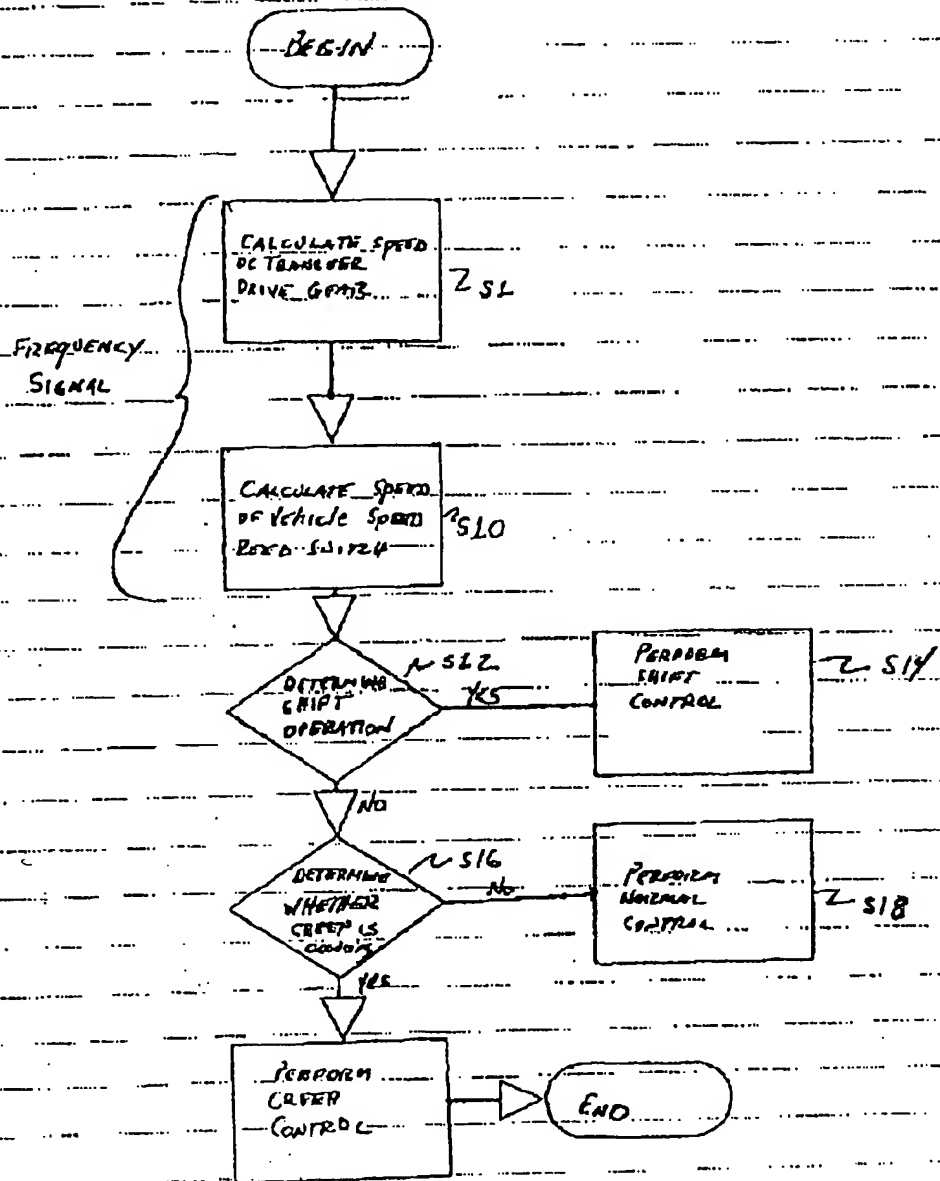 BEGIN
CALCULATE SPEED
OF TRANSFER
DRIVE GEAR
S1
FREQUENCY
SIGNAL
CALCULATE SPEED
OF Vehicle SPEED
REED SWITCH
S10
DETERMINE
SHIFT
OPERATION
S12
YES
PERFORM
SHIFT
CONTROL
S14
NO
DETERMINE
WHETHER
CREEP IS
S16
NO
PERFORM
NORMAL
CONTROL
S18
YES
PERFORM
CREEP
CONTROL
END